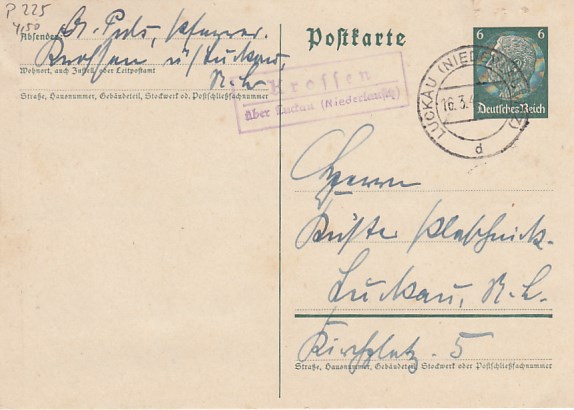 P 225
4,50
Absender:
Puls, Pfarrer.
Krossen ü/Luckau,
N.L.
Wohnort, auch Zustell- oder Leitpostamt
Straße, Hausnummer, Gebäudeteil, Stockwerk od. Postschließfachnummer
Postkarte
6 6
Deutsches Reich
Krossen
über Luckau (Niederlausitz)
LUCKAU (NIEDER
16.3.4
d
Herrn
Küster Plaschnick.
Luckau, N.L.
Kirchplatz. 5
Straße, Hausnummer, Gebäudeteil, Stockwerk oder Postschließfachnummer